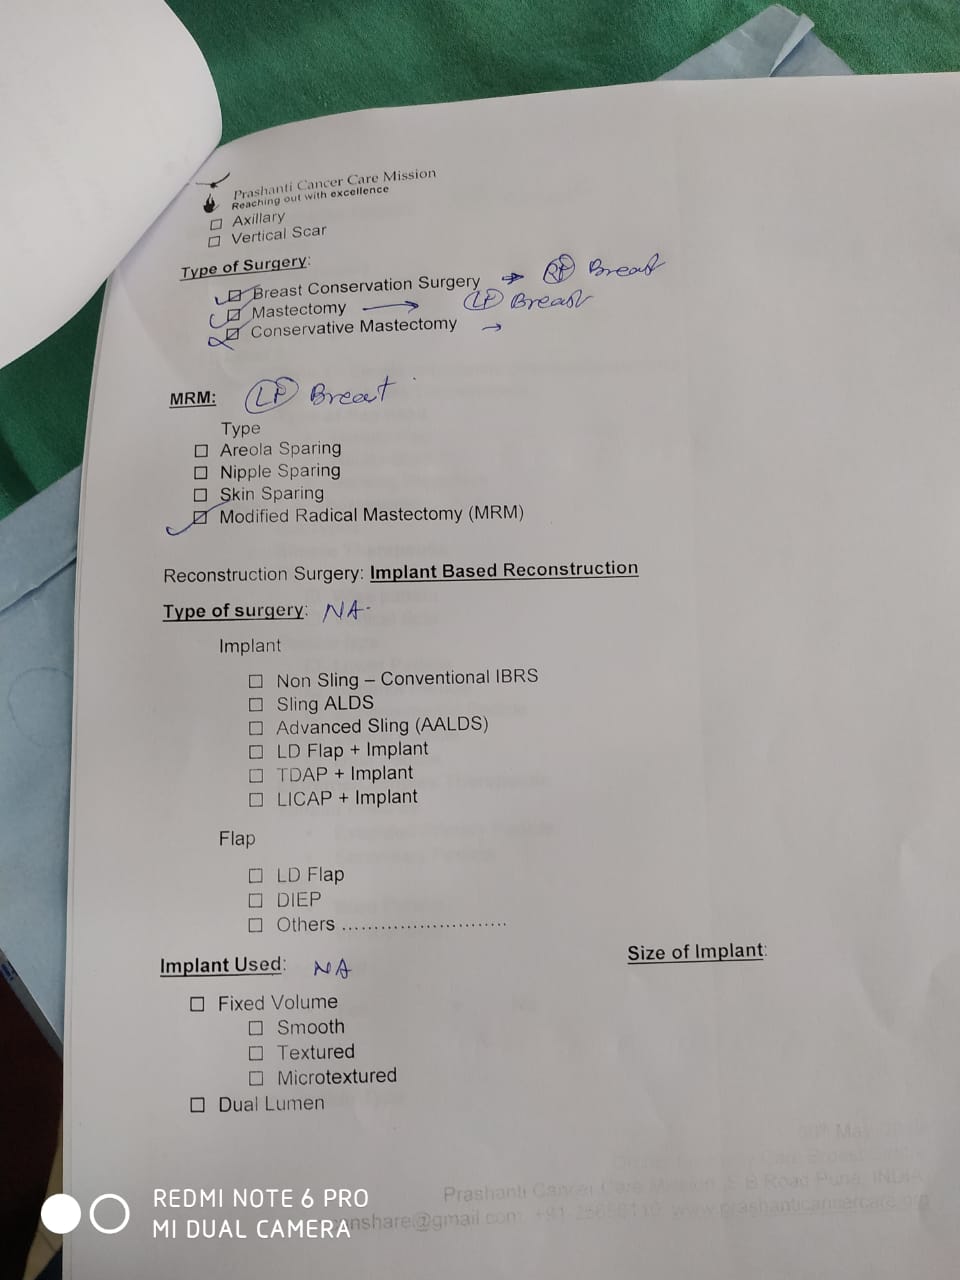 Prashanti Cancer Care Mission
Reaching out with excellence
☐ Axillary
☐ Vertical Scar
Type of Surgery:
☑ Breast Conservation Surgery → Rt Breast
☑ Mastectomy → Lt Breast
☑ Conservative Mastectomy →
MRM: Lt Breast
Type
☐ Areola Sparing
☐ Nipple Sparing
☐ Skin Sparing
☑ Modified Radical Mastectomy (MRM)
Reconstruction Surgery: Implant Based Reconstruction
Type of surgery: NA
Implant
☐ Non Sling – Conventional IBRS
☐ Sling ALDS
☐ Advanced Sling (AALDS)
☐ LD Flap + Implant
☐ TDAP + Implant
☐ LICAP + Implant
Flap
☐ LD Flap
☐ DIEP
☐ Others ..........................
Implant Used: NA Size of Implant:
☐ Fixed Volume
☐ Smooth
☐ Textured
☐ Microtextured
☐ Dual Lumen
Prashanti Cancer Care Mission
REDMI NOTE 6 PRO
MI DUAL CAMERA